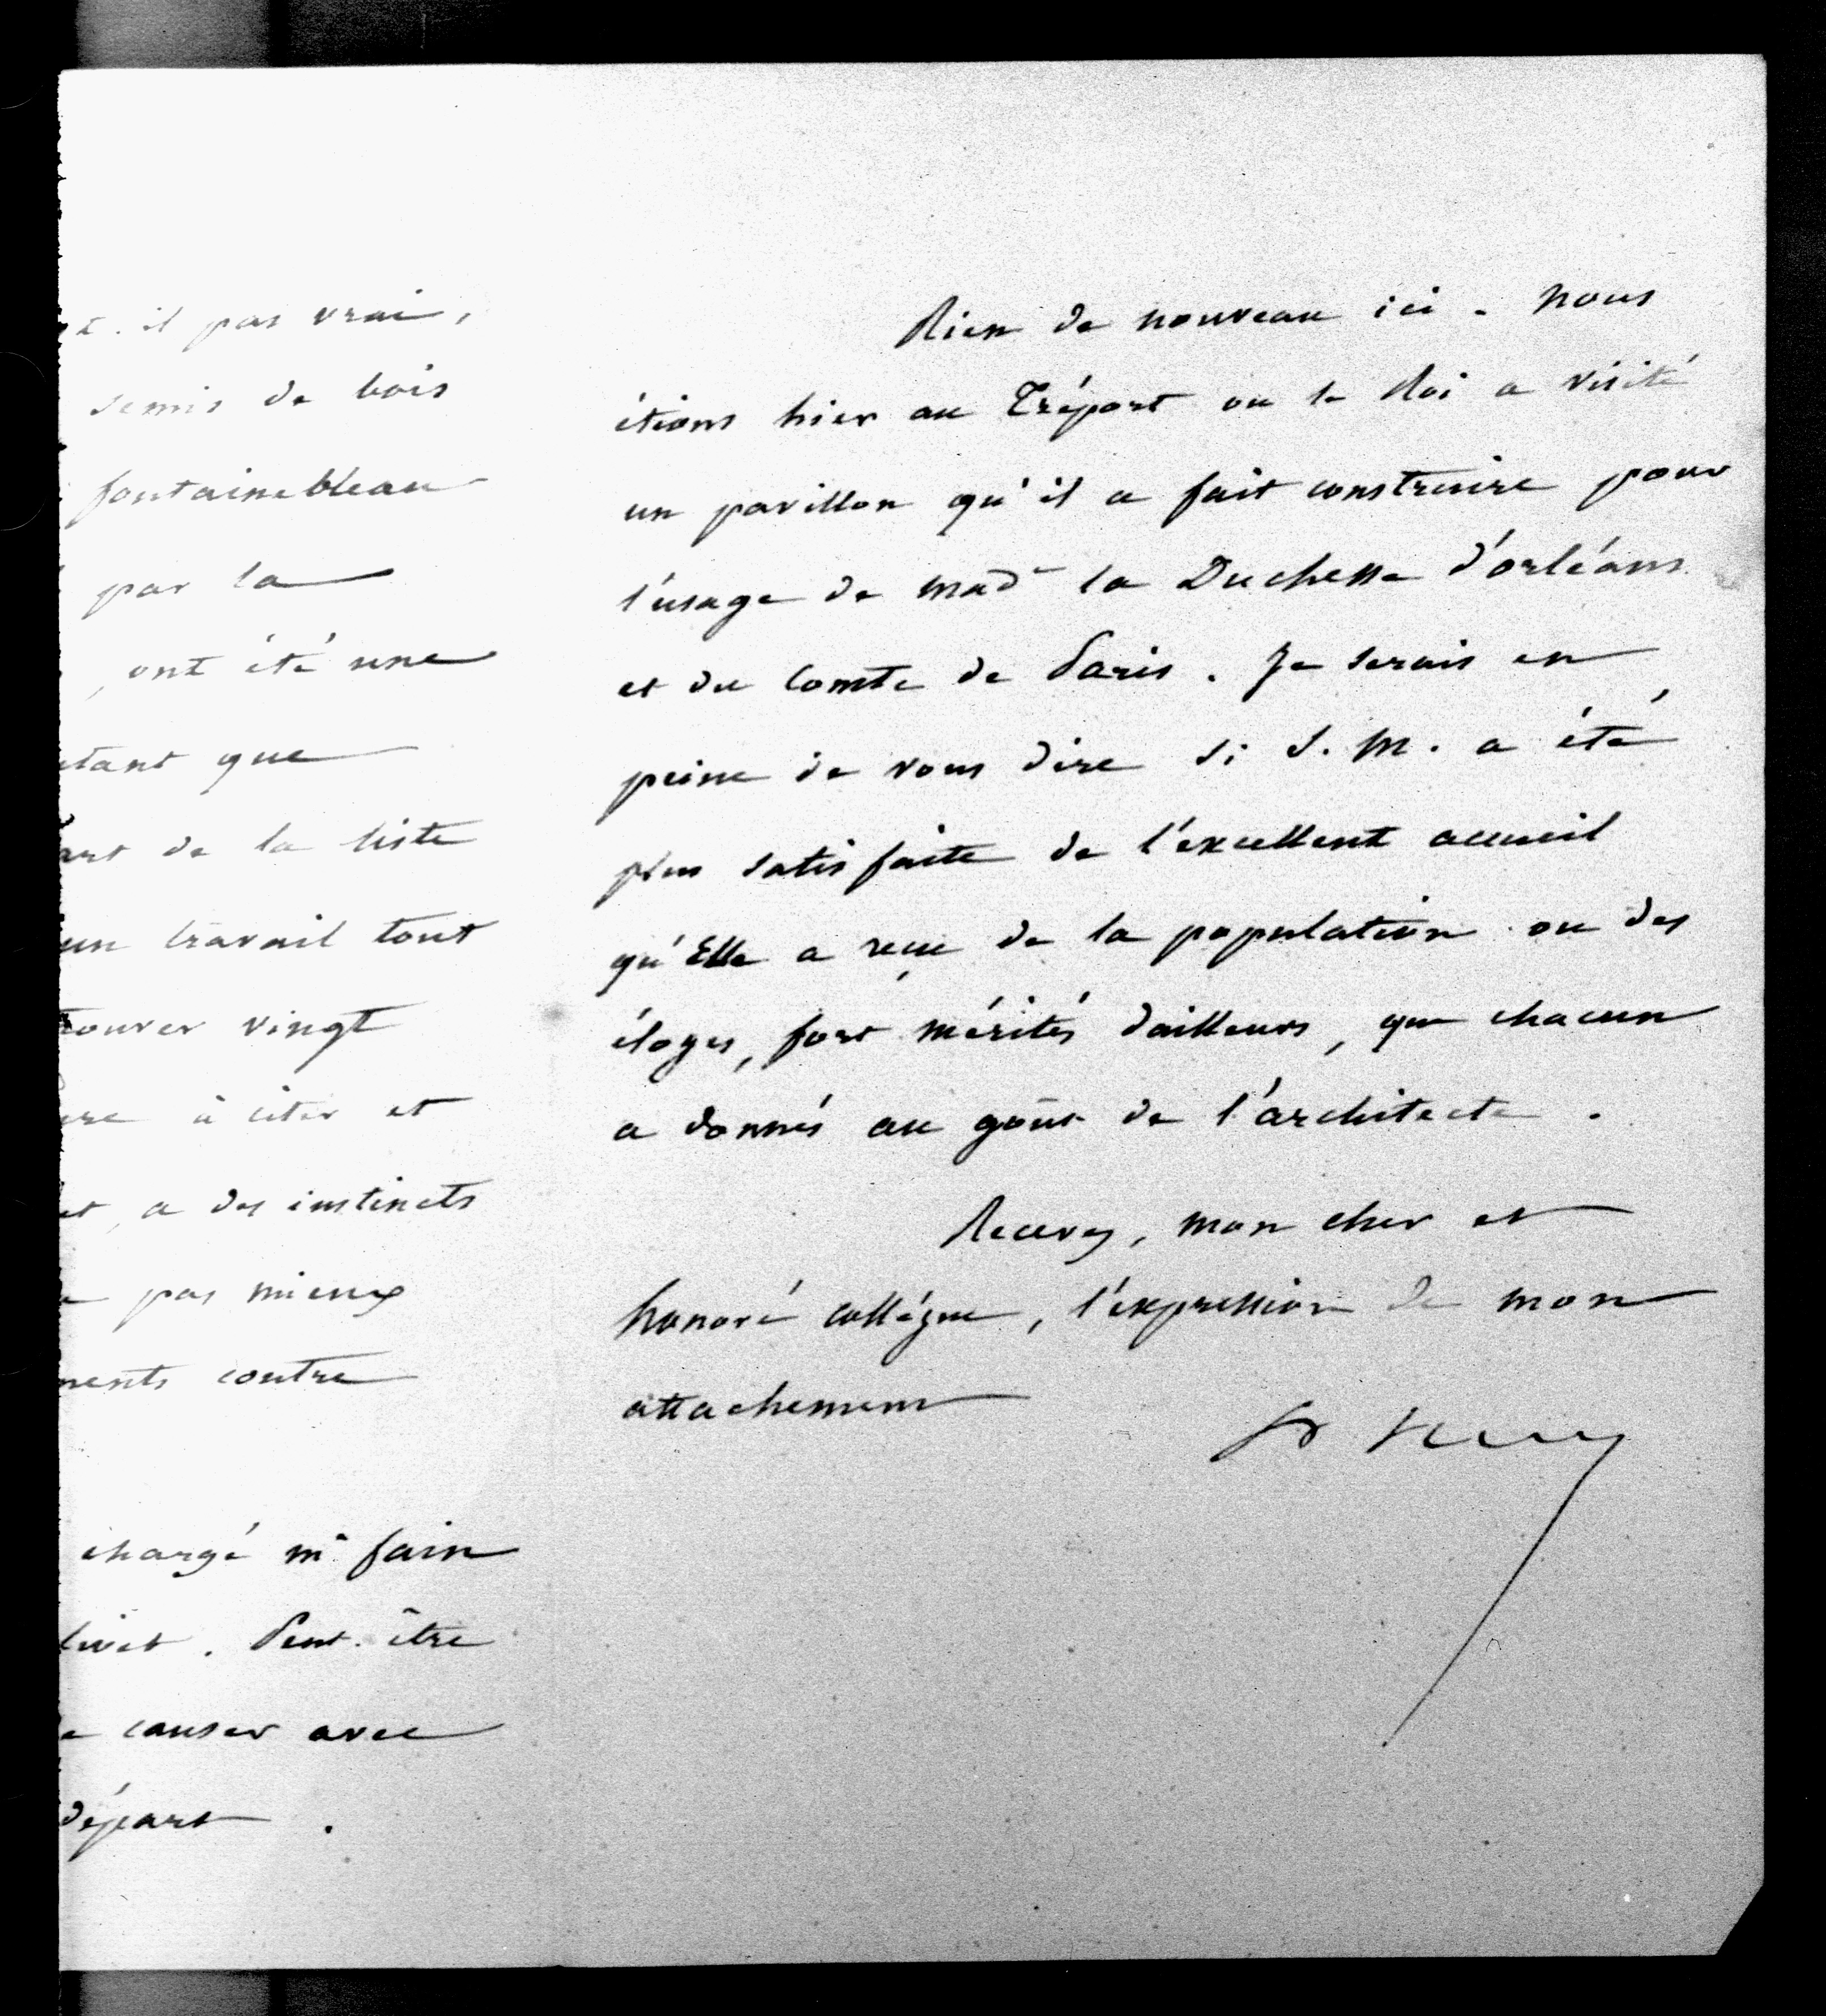 t. il pas vrai,
semis de bois
fontainebleau
par la
, ont été une
tant que
art de la liste
un travail tout
ouver vingt
re à citer et
et, a des instincts
pas mieux
ments contre
chargé mr fain
livet. Peut. être
causer avec
départ.
Rien de nouveau ici. nous
étions hier au Tréport ou le Roi a visité
un pavillon qu'il a fait construire pour
l'usage de mad^e la Duchesse d'orléans
et du Comte de Paris. Je serais en
peine de vous dire si S. M. a été
plus satisfaite de l'excellent accueil
qu'Elle a reçu de la population ou des
éloges, fort mérités d'ailleurs, que chacun
a donnés au goût de l'architecte.
Recevez, mon cher et
honoré collègue, l'expression de mon
attachement